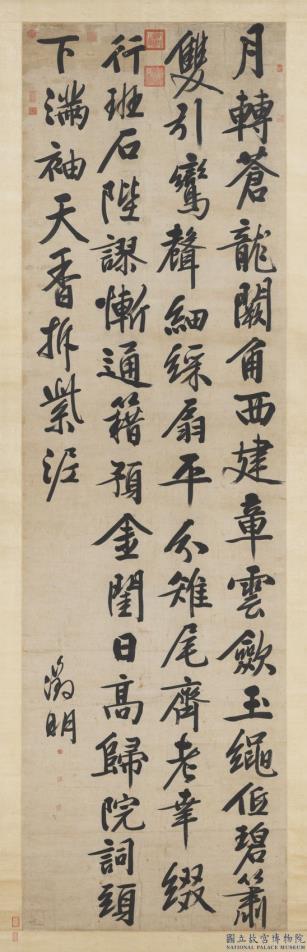 月轉蒼龍闕角西建章雲歛玉繩低碧簫
雙引鸞聲細綵扇平分雉尾齊老幸綴
行班石陛謬慚通籍預金閨日高歸院詞頭
下滿袖天香拆紫泥
徵明
國立故宮博物院
NATIONAL PALACE MUSEUM